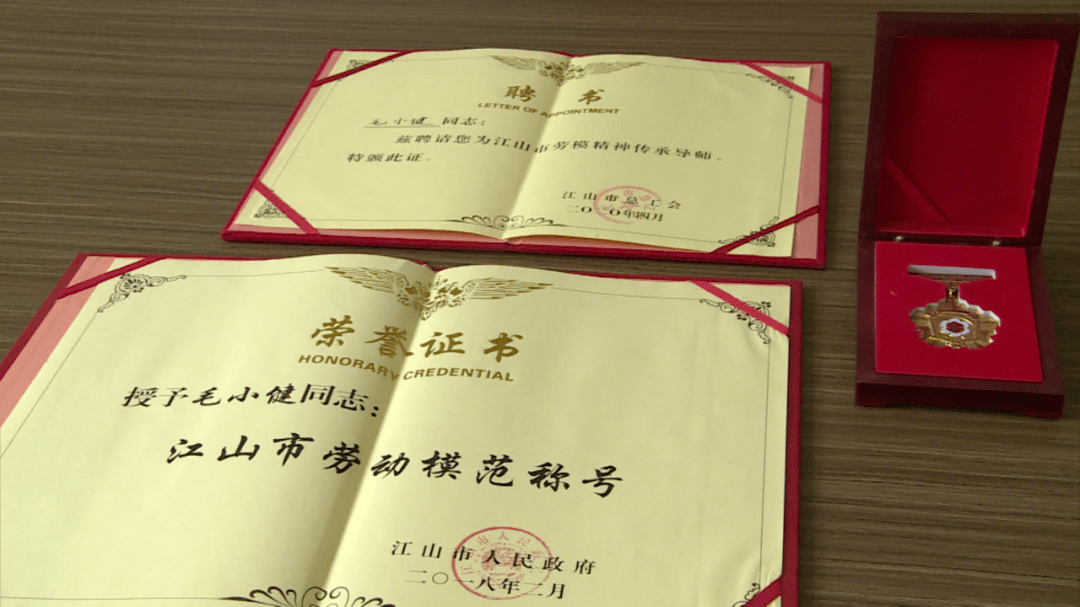 聘书
LETTER OF APPOINTMENT
毛小健 同志：
兹聘请您为江山市劳模精神传承导师。
特颁此证。
江山市总工会
二〇二〇年四月
荣誉证书
HONORARY CREDENTIAL
授予毛小健同志：
江山市劳动模范称号
江山市人民政府
二〇一八年二月